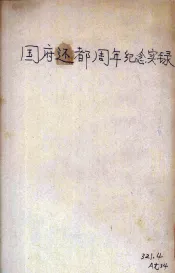 国府还都周年纪念实录
321.4